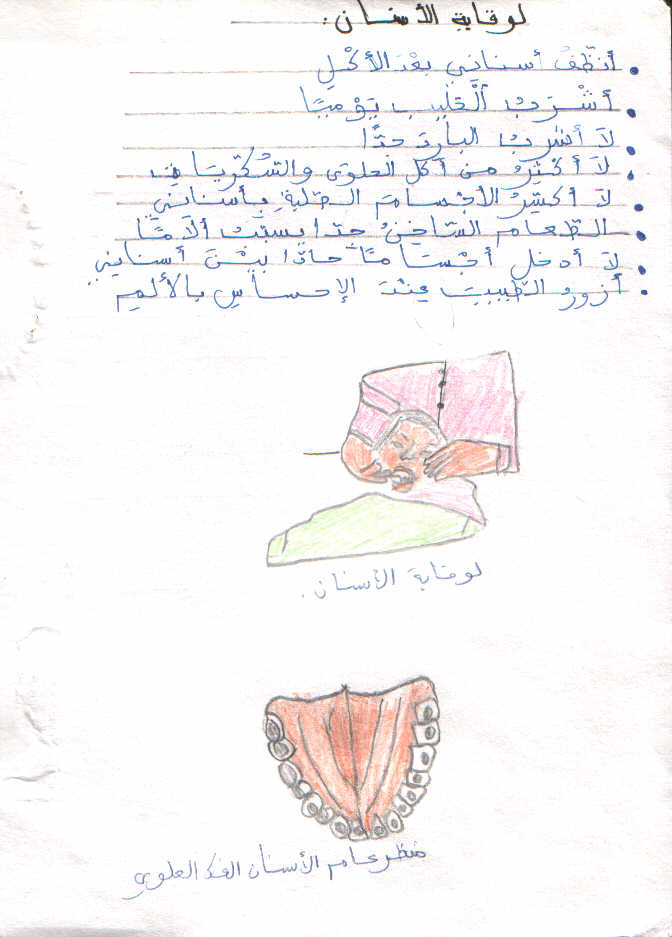 لوقاية الأسنان:
• أنظّفُ أسناني بعْدَ الأكْلِ
• أشْرَبُ الْحَلِيبَ يَوْمِيًّا
• لاَ أشْرَبُ البارِدَ جدًّا
• لاَ أكْثِرُ مِنْ أكل الحلوى والسُّكّرِيَاتِ
• لاَ أكَسِّرُ الأجْسامَ الصّلبةِ بِأسنَانِي
• الطّعام السّاخِنُ جدا يسبّبُ ألَامًا
• لاَ أدخل أجْسَامًا حادّا بيْنَ أسنانِي
• أزورُ الطّبيبَ عِنْدَ الإحساسِ بالألمِ
لوقاية الأسنان.
منظر عام الأسنان الفك العلوي